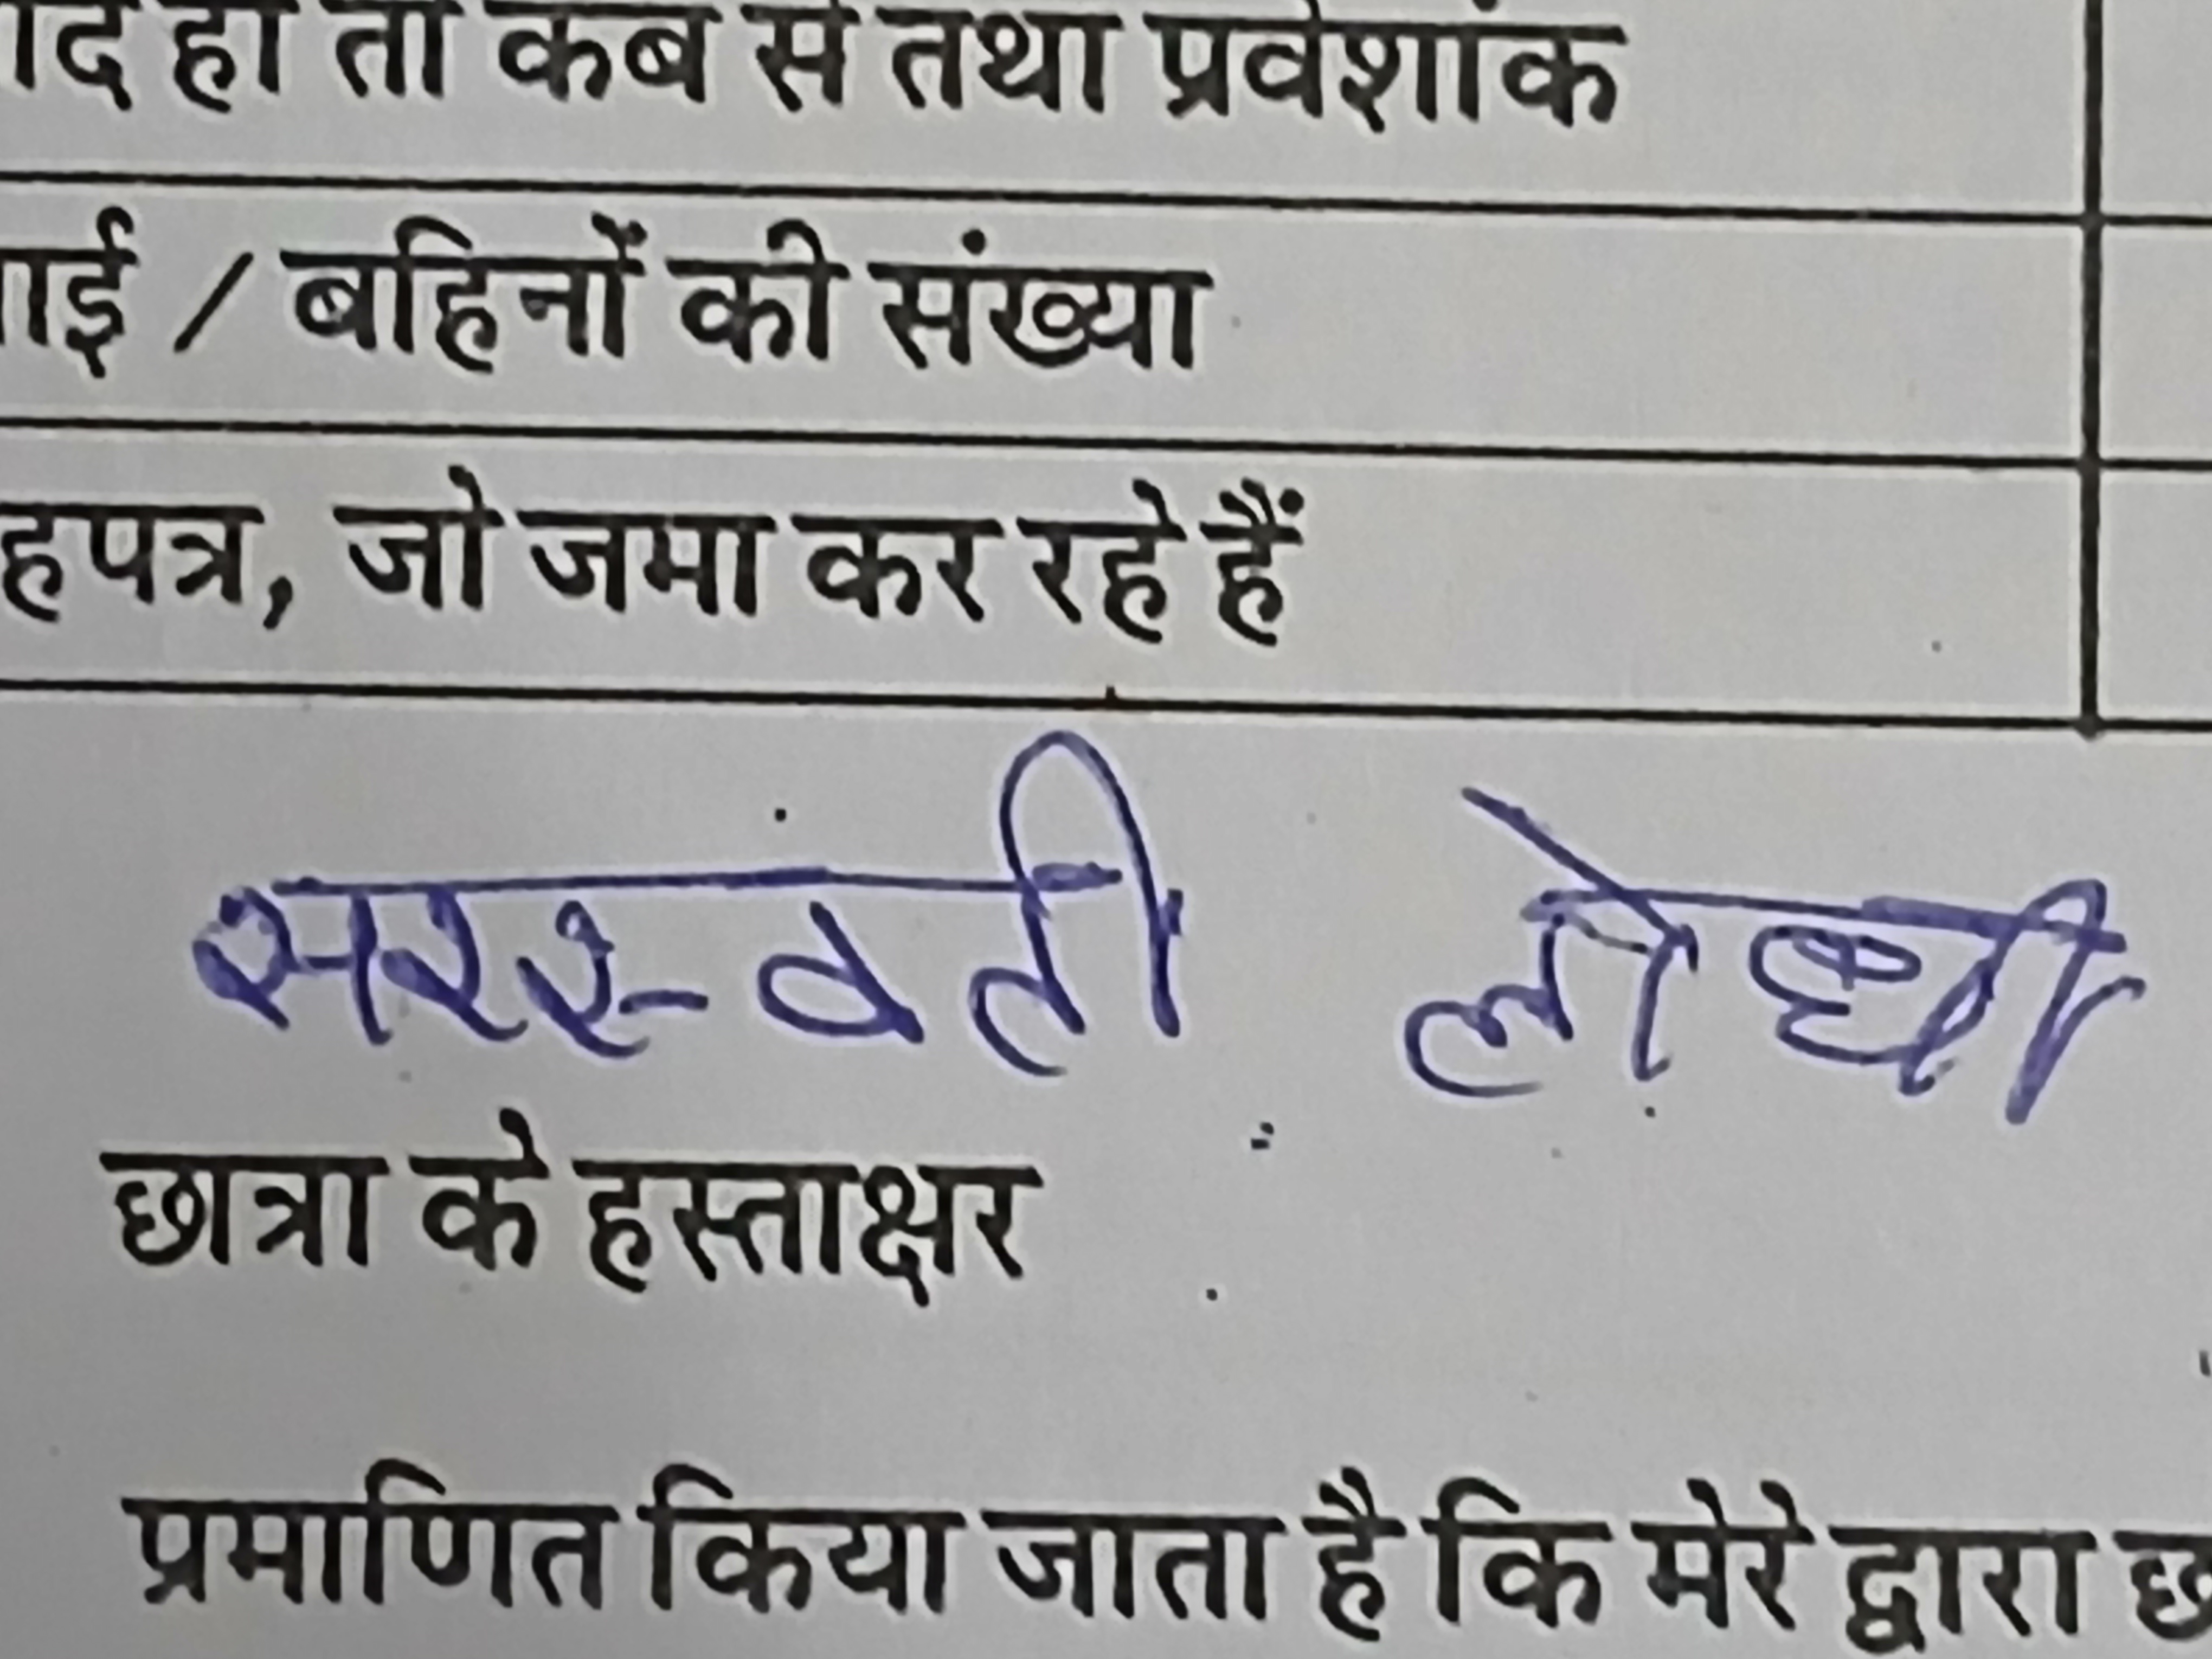 हो तो कब से तथा प्रवेशांक
/ बहिनों की संख्या
जो जमा कर रहे हैं
सरस्वती लोधी
छात्रा के हस्ताक्षर
प्रमाणित किया जाता है कि मेरे द्वारा